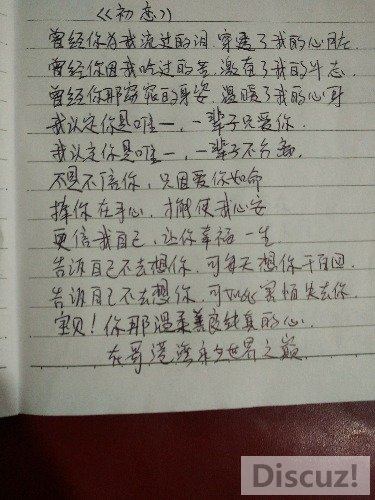 《初恋》
曾经你为我流过的泪 穿透了我的心
曾经你因我吃过的苦 激有了我的斗志
曾经你那窈窕的身姿 温暖了我的心
我认定你是唯一，一辈子只爱你
我认定你是唯一，一辈子不分离
不是不信你，只因爱你如命
捧你在手心，才能使我心安
更信我自己，让你幸福一生
告诉自己不去想你，可每天想你千百回
告诉自己不去想你，可如此害怕失去你
宝贝！你那温柔善良纯真的心
在哥漫的世界之巅
Discuz!